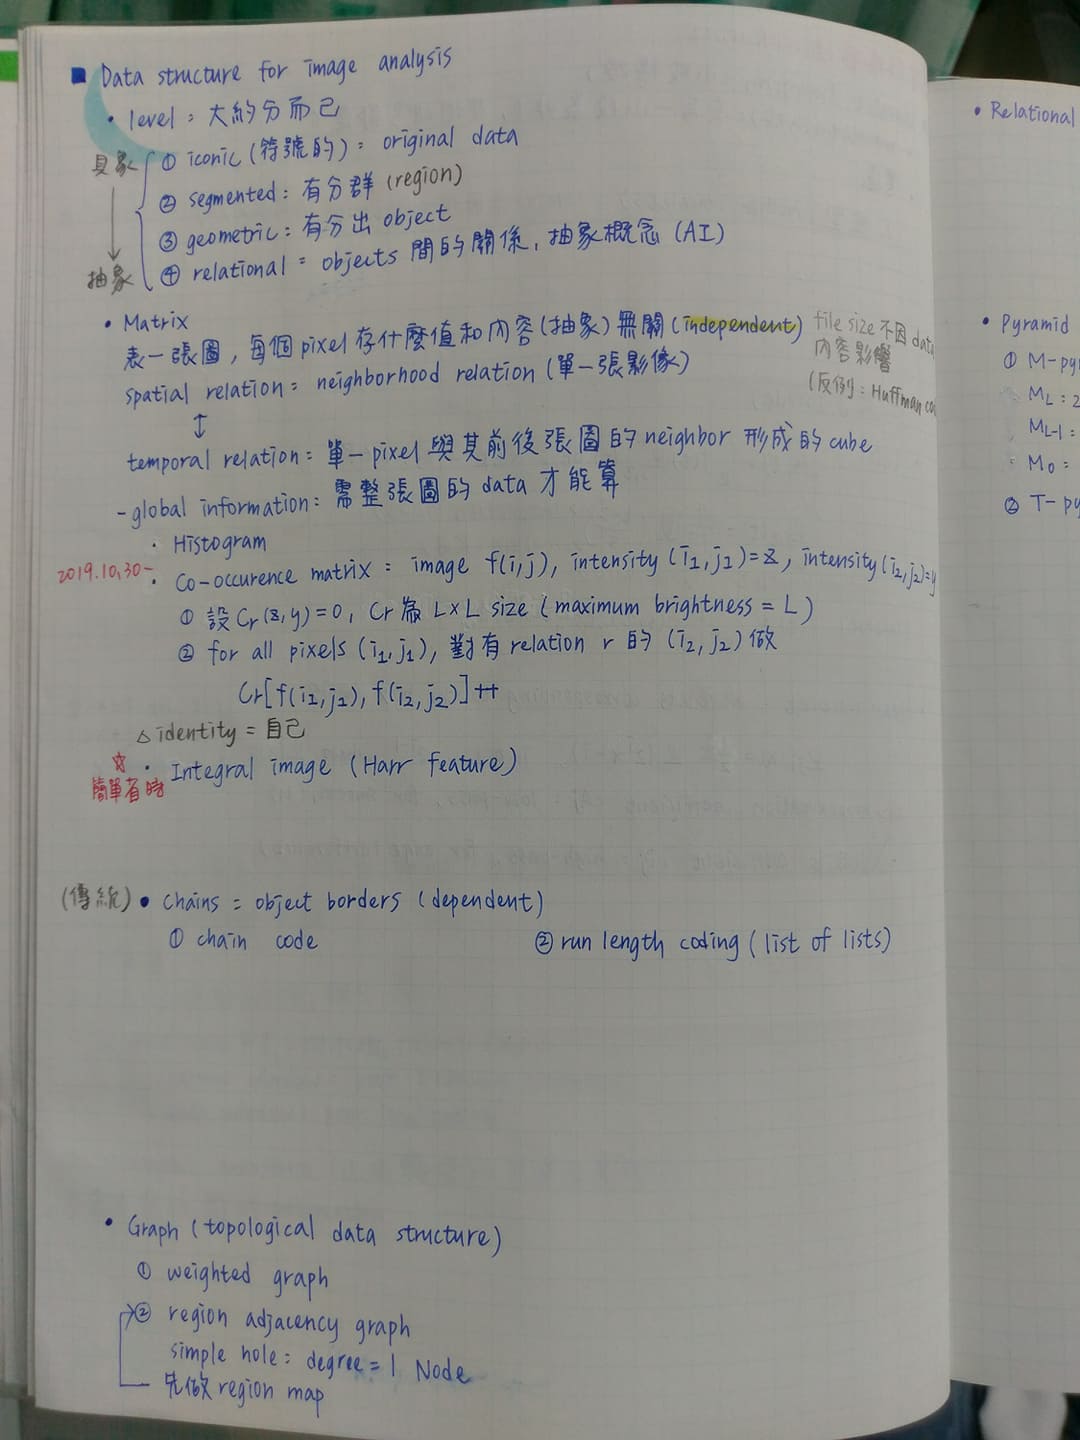 Data structure for image analysis
• level : 大約分而已
具象 ① iconic (符號的) : original data
② segmented : 有分群 (region)
③ geometric : 有分出 object
抽象 ④ relational : objects 間的關係, 抽象概念 (AI)
• Matrix
表一張圖, 每個 pixel 存什麼值和內容(抽象) 無關 (independent)
file size 不因 data
內容影響
(反例 : Huffman
spatial relation : neighborhood relation (單一張影像)
↕
temporal relation : 單一 pixel 與其前後張圖的 neighbor 形成的 cube
- global information : 需整張圖的 data 才能算
· Histogram
2019.10.30-
· Co-occurence matrix : image f(i,j), intensity (i1,j1)=z, intensity (i2,j2)=y
① 設 Cr(z,y)=0, Cr 為 L×L size (maximum brightness = L)
② for all pixels (i1,j1), 對有 relation r 的 (i2,j2) 做
Cr[f(i1,j1), f(i2,j2)]++
△ identity = 自己
☆ · Integral image (Harr feature)
簡單省時
(傳統) • Chains = object borders (dependent)
① chain code ② run length coding (list of lists)
• Graph (topological data structure)
① weighted graph
② region adjacency graph
simple hole : degree = 1 Node
先做 region map
• Relational
• Pyramid
① M-py
ML : 2
ML-1 :
M0 :
② T-py